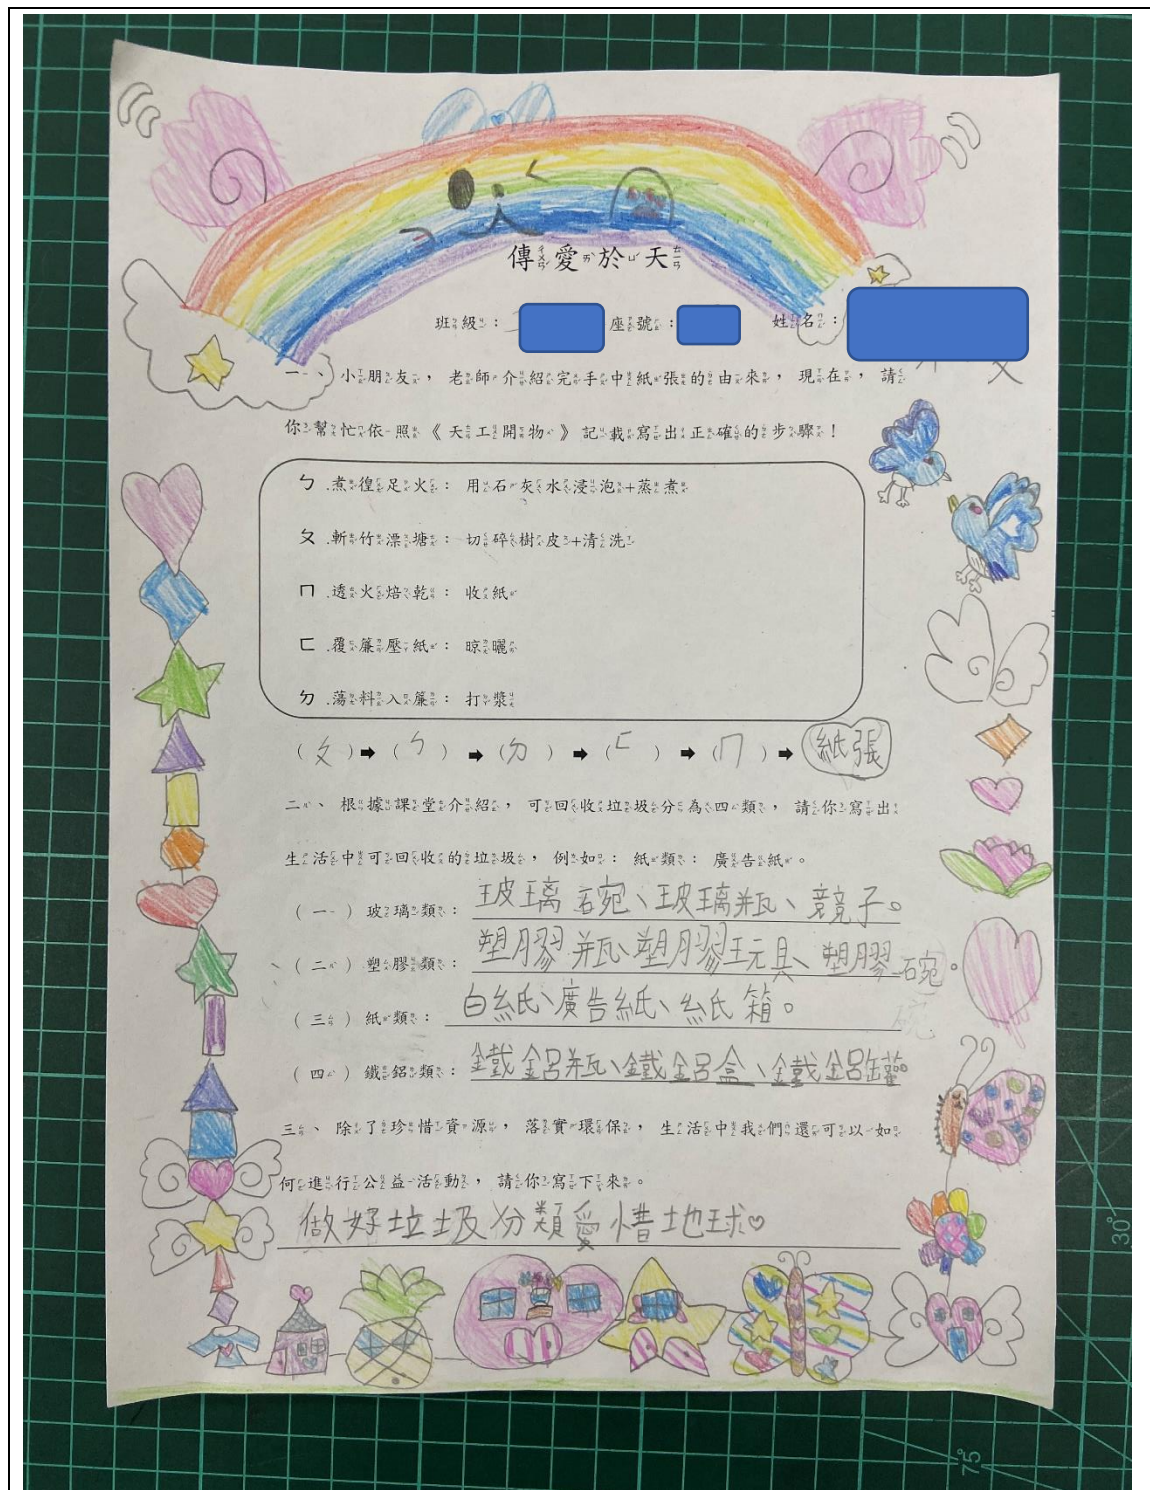 傳愛於天
班級： 座號： 姓名：
一、小朋友，老師介紹完手中紙張的由來，現在，請
你幫忙依照《天工開物》記載寫出正確的步驟！
ㄅ.煮徨足火：用石灰水浸泡+蒸煮
ㄆ.斬竹漂塘：切碎樹皮+清洗
ㄇ.透火焙乾：收紙
ㄈ.覆簾壓紙：晾曬
ㄉ.蕩料入簾：打漿
(ㄆ)➡(ㄅ)➡(ㄉ)➡(ㄈ)➡(ㄇ)➡紙張
二、根據課堂介紹，可回收垃圾分為四類，請你寫出
生活中可回收的垃圾，例如：紙類：廣告紙。
(一)玻璃類：玻璃碗、玻璃瓶、競子。
(二)塑膠類：塑膠瓶、塑膠玩具、塑膠碗。
(三)紙類：白紙、廣告紙、紙箱。
(四)鐵鋁類：鐵鋁瓶、鐵鋁盒、鐵鋁罐。
三、除了珍惜資源，落實環保，生活中我們還可以如
何進行公益活動，請你寫下來。
做好垃圾分類愛惜地球♡
30°
75°